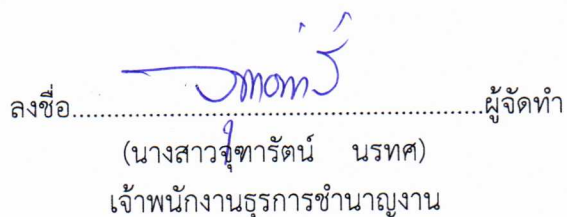 ลงชื่อ................................................ผู้จัดทำ
(นางสาวจุฑารัตน์ นรทศ)
เจ้าพนักงานธุรการชำนาญงาน